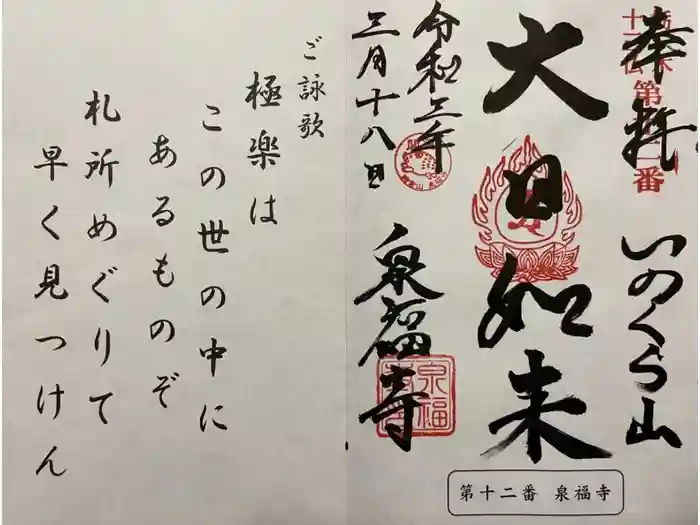 栃木
十三仏
第十二番
奉拝
いのくら山
大日如来
令和三年
三月十八日
泉福寺
泉福
第十二番 泉福寺
ご詠歌
極楽は
この世の中に
あるものぞ
札所めぐりて
早く見つけん